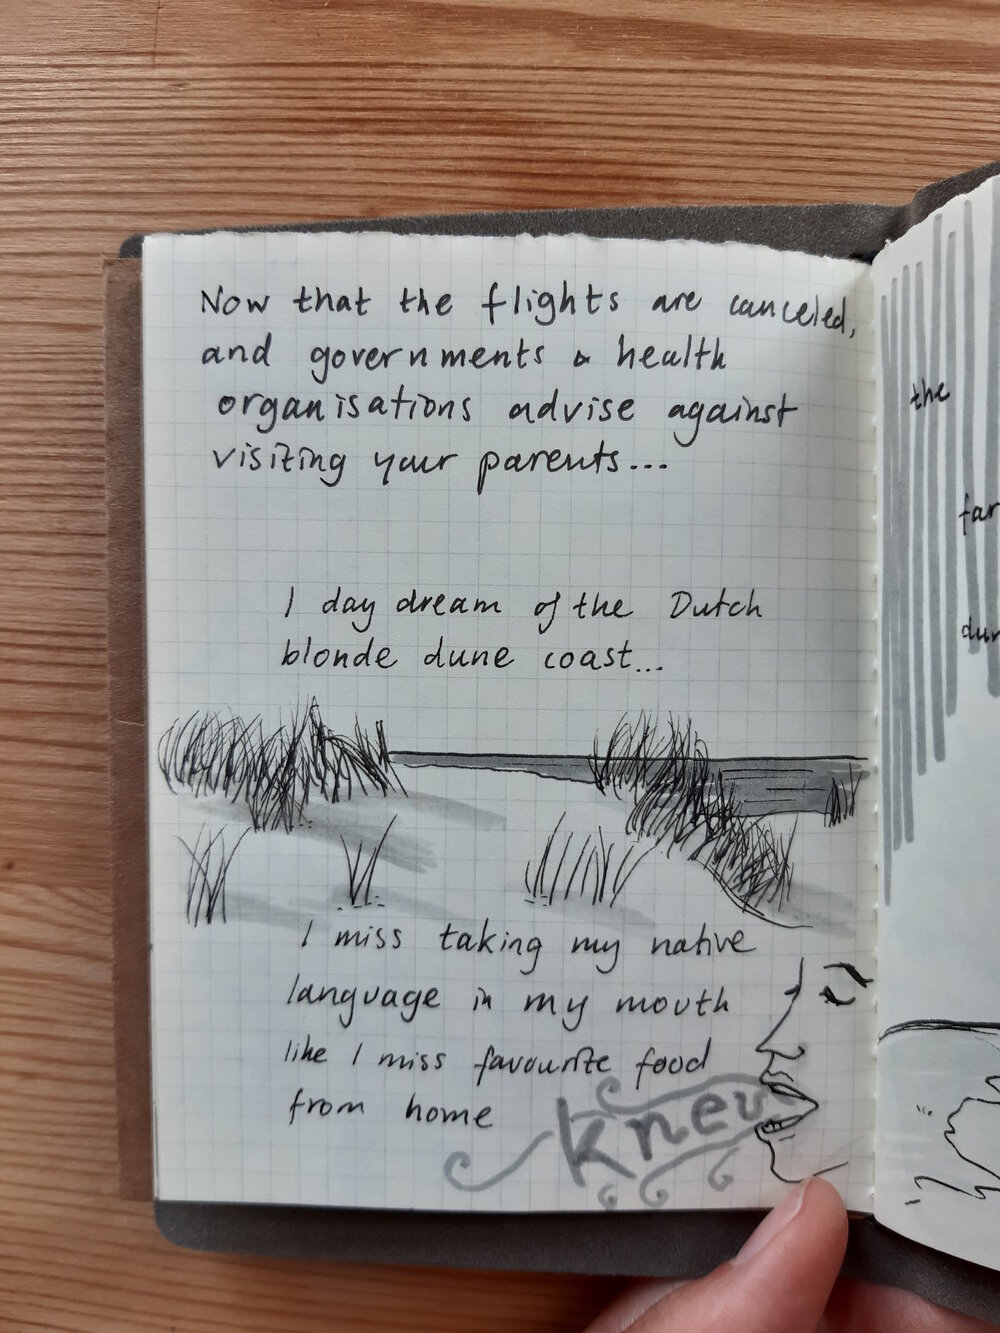 Now that the flights are canceled,
and governments & health
organisations advise against
visiting your parents...
I day dream of the Dutch
blonde dune coast...
I miss taking my native
language in my mouth
like I miss favourite food
from home
the
far